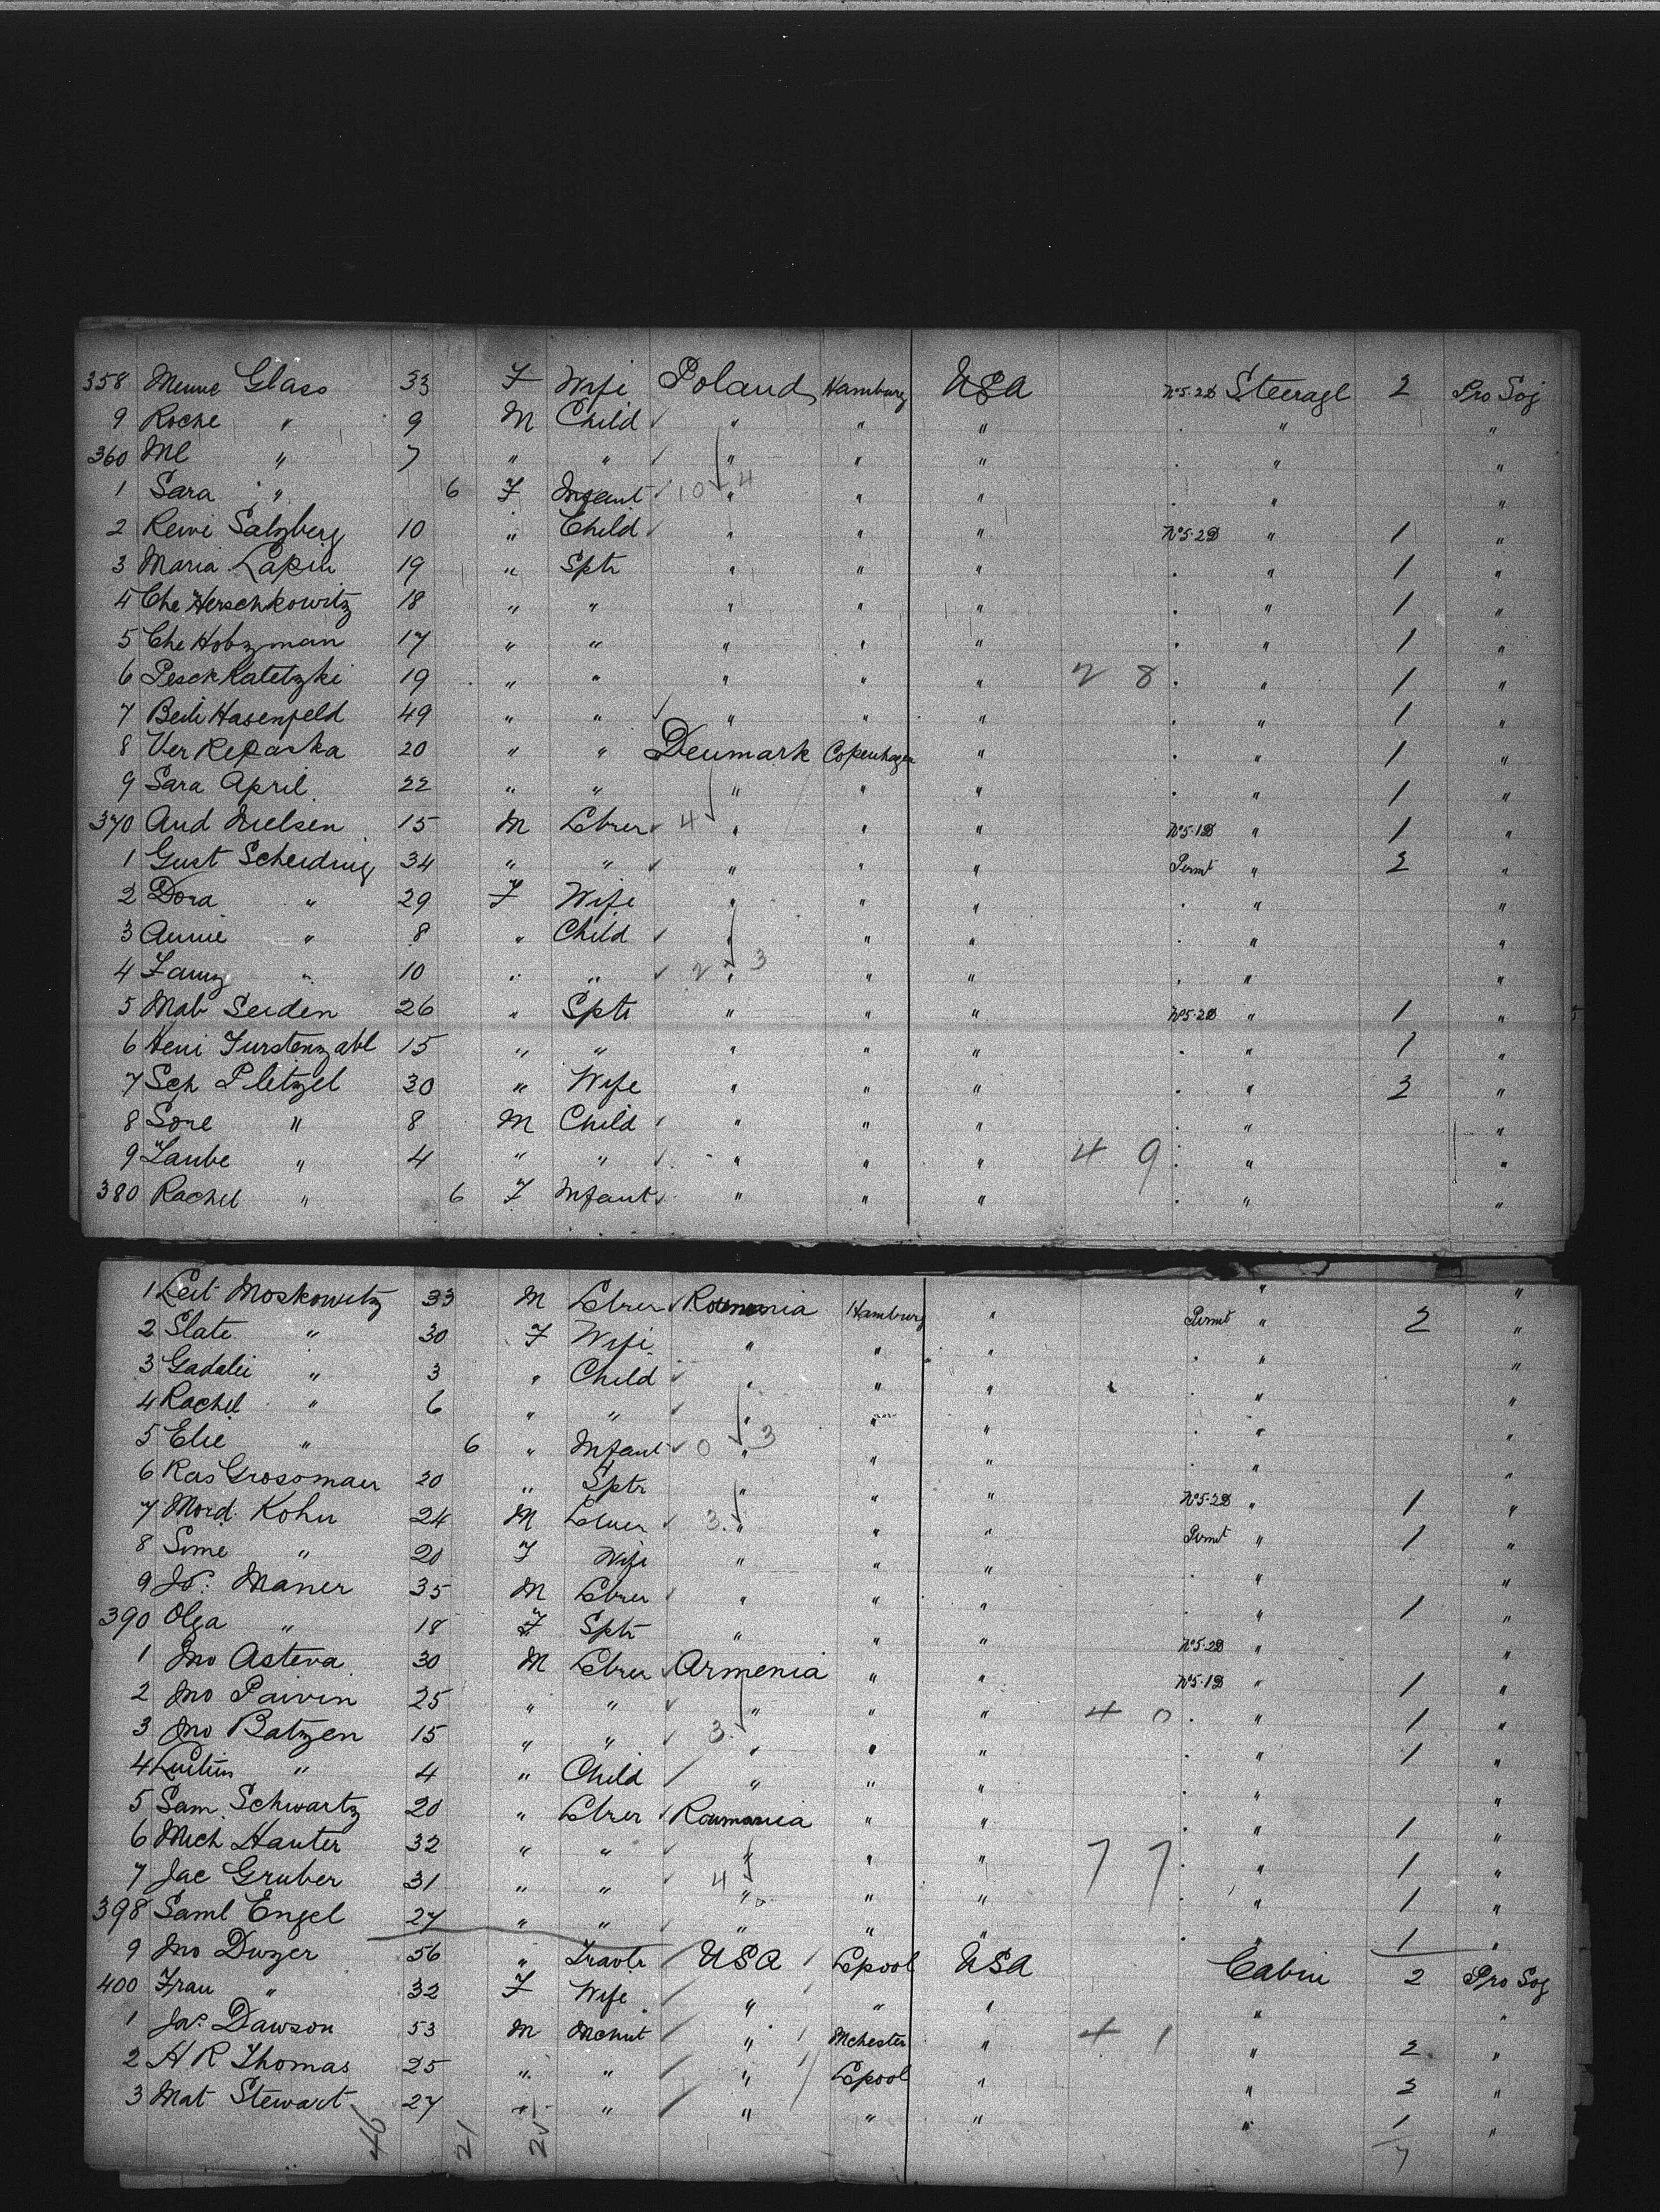 358 Menne Glass 33 F Wife Poland Hamburg USA No 5.2D Steerage 2 Pro Soj
9 Roche " 9 M Child " " " " "
360 Ml " 7 " " " " " " "
1 Sara " 6 F Infant 10 4 " " " " "
2 Rewi Salzberg 10 " Child " " " No 5.2D " 1 "
3 Maria Lapin 19 " Sptr " " " " 1 "
4 Che Herschkowitz 18 " " " " " " 1 "
5 Che Hobzman 17 " " " " " " 1 "
6 Pesck Katetzki 19 " " " " " 2 8 " 1 "
7 Beili Hasenfeld 49 " " " " " " 1 "
8 Ver Repaska 20 " " Denmark Copenhagen " " 1 "
9 Sara April 22 " " " " " " 1 "
370 And Nielsen 15 M Lbrer 4 " " " No 5.1D " 1 "
1 Gust Scheiding 34 " " " " " Permt " 2 "
2 Dora " 29 F Wife " " " " "
3 Annie " 8 " Child " " " " "
4 Fanny " 10 " " 2 3 " " " " "
5 Mab Seiden 26 " Sptr " " " No 5.2D " 1 "
6 Heni Furstenzabl 15 " " " " " " 1 "
7 Sch Pletzel 30 " Wife " " " " 2 "
8 Sore " 8 M Child " " " " "
9 Taube " 4 " " " " " 4 9 " "
380 Rachel " 6 F Infant " " " " "
1 Leib Moskowitz 33 M Lbrer Roumania Hamburg " Permt " 2 "
2 Slate " 30 F Wife " " " " "
3 Gadalei " 3 " Child " " " " "
4 Rachel " 6 " " " " " " "
5 Elie " 6 " Infant 0 3 " " " " "
6 Ras Grossman 20 " Sptr " " " No 5.2D " 1 "
7 Mord. Kohn 24 M Lbrer 3 " " " Permt " 1 "
8 Sime " 20 F Wife " " " " "
9 Jos. Maner 35 M Lbrer " " " " 1 "
390 Olga " 18 F Sptr " " " No 5.2D " "
1 Jno Asteva 30 M Lbrer Armenia " " No 5.1D " 1 "
2 Jno Paivin 25 " " " " " 4 0 " 1 "
3 Jno Batzen 15 " " 3 " " " " 1 "
4 " 4 " Child " " " " "
5 Sam. Schwartz 20 " Lbrer Roumania " " " 1 "
6 Mich Hauter 32 " " " " " 7 7 " 1 "
7 Jac Gruber 31 " " 4 " " " " 1 "
398 Saml Engel 27 " " " " " " 1 "
9 Jno Dwyer 56 " Travlr USA Lpool USA Cabin 2 Pro Soj
400 Frau " 32 F Wife " " " " "
1 Jas. Dawson 53 M Mchnt " Mchester " 4 1 " 2 "
2 H R Thomas 25 " " " Lpool " " 2 "
3 Mat Stewart 27 " " " " " " 1 "
46 21 25 7